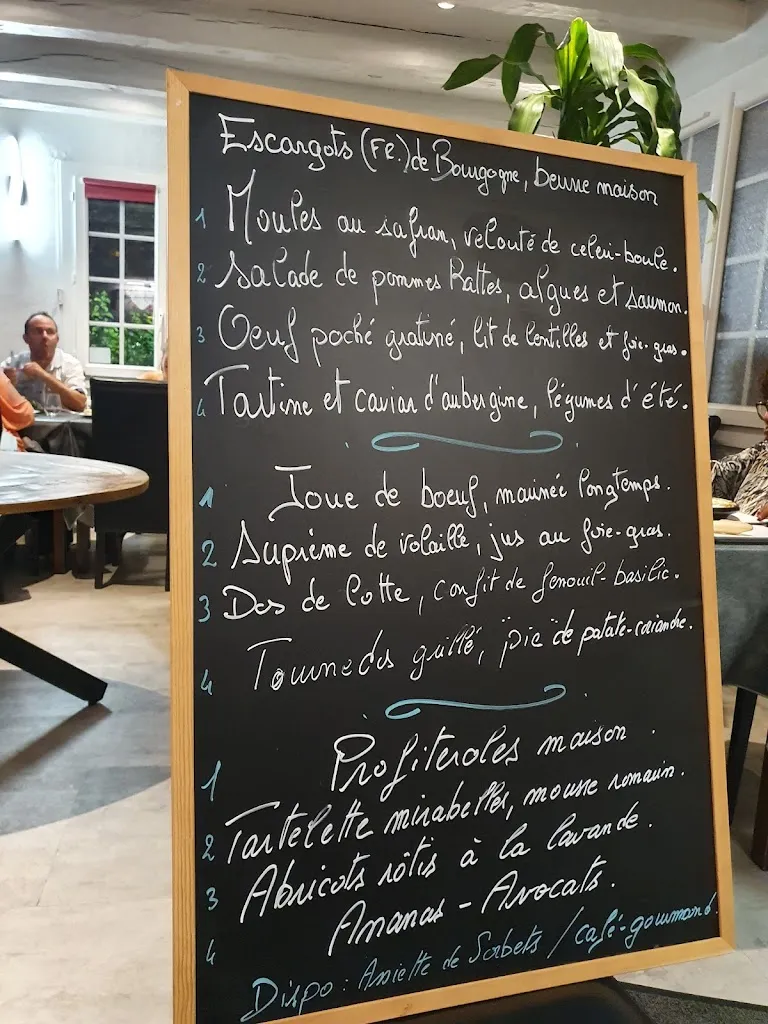 Escargots (FR.) de Bourgogne, beurre maison
1 Moules au safran, velouté de céleri-boule.
2 Salade de pommes Rattes, algues et saumon.
3 Oeuf poché gratiné, lit de lentilles et foie-gras.
4 Tartine et caviar d'aubergine, légumes d'été.
1 Joue de boeuf, marinée longtemps.
2 Suprême de volaille, jus au foie-gras.
3 Dos de lotte, confit de fenouil-basilic.
4 Tournedos grillé, "pie" de patate-coriandre.
1 Profiteroles maison.
2 Tartelette mirabelles, mousse romarin.
3 Abricots rôtis à la lavande.
4 Ananas - Avocats.
Dispo : Assiette de Sorbets / café-gourmand.